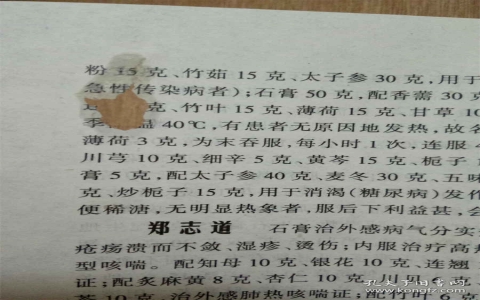 粉 15 克、竹茹 15 克、太子参 30 克,用于
急性传染病者);石膏 50 克,配香薷 30 克
克、竹叶 15 克、薄荷 15 克、甘草 10
温 40℃,有患者无原因地发热,故名
薄荷 3 克,为末吞服,每小时 1 次,连服
川芎 10 克、细辛 5 克、黄芩 15 克、栀子
膏 5 克,配太子参 40 克、麦冬 30 克、五味
克、炒栀子 15 克,用于消渴(糖尿病)发作
便稀溏,无明显热象者,服后下利益甚,
郑志道 石膏治外感病气分实
疮疡溃而不敛、湿疹、烫伤;内服治疗高
型咳喘。配知母 10 克、银花 10 克、连翘
证;配炙麻黄 8 克、杏仁 10 克、川贝
苓 10 克,治外感肺热咳喘证;配竹叶 6 克
孔夫子旧书网
www.kongfz.com